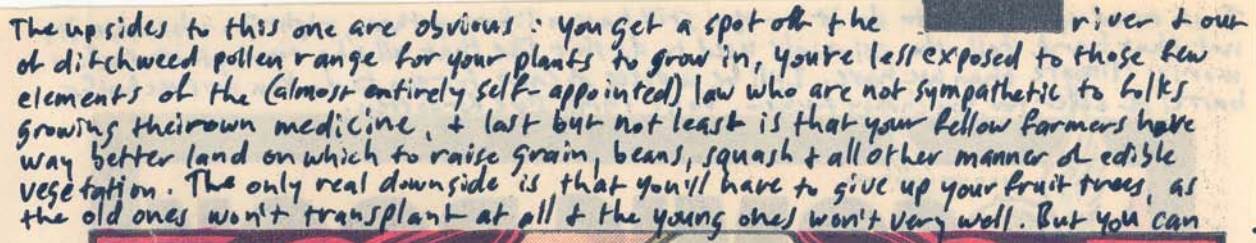 The upsides to this one are obvious : you get a spot off the river & out
of ditchweed pollen range for your plants to grow in, you're less exposed to those few
elements of the (almost entirely self-appointed) law who are not sympathetic to folks
growing their own medicine, & last but not least is that your fellow farmers have
way better land on which to raise grain, beans, squash & all other manner of edible
vegetation. The only real downside is that you'll have to give up your fruit trees, as
the old ones won't transplant at all & the young ones won't very well. But you can